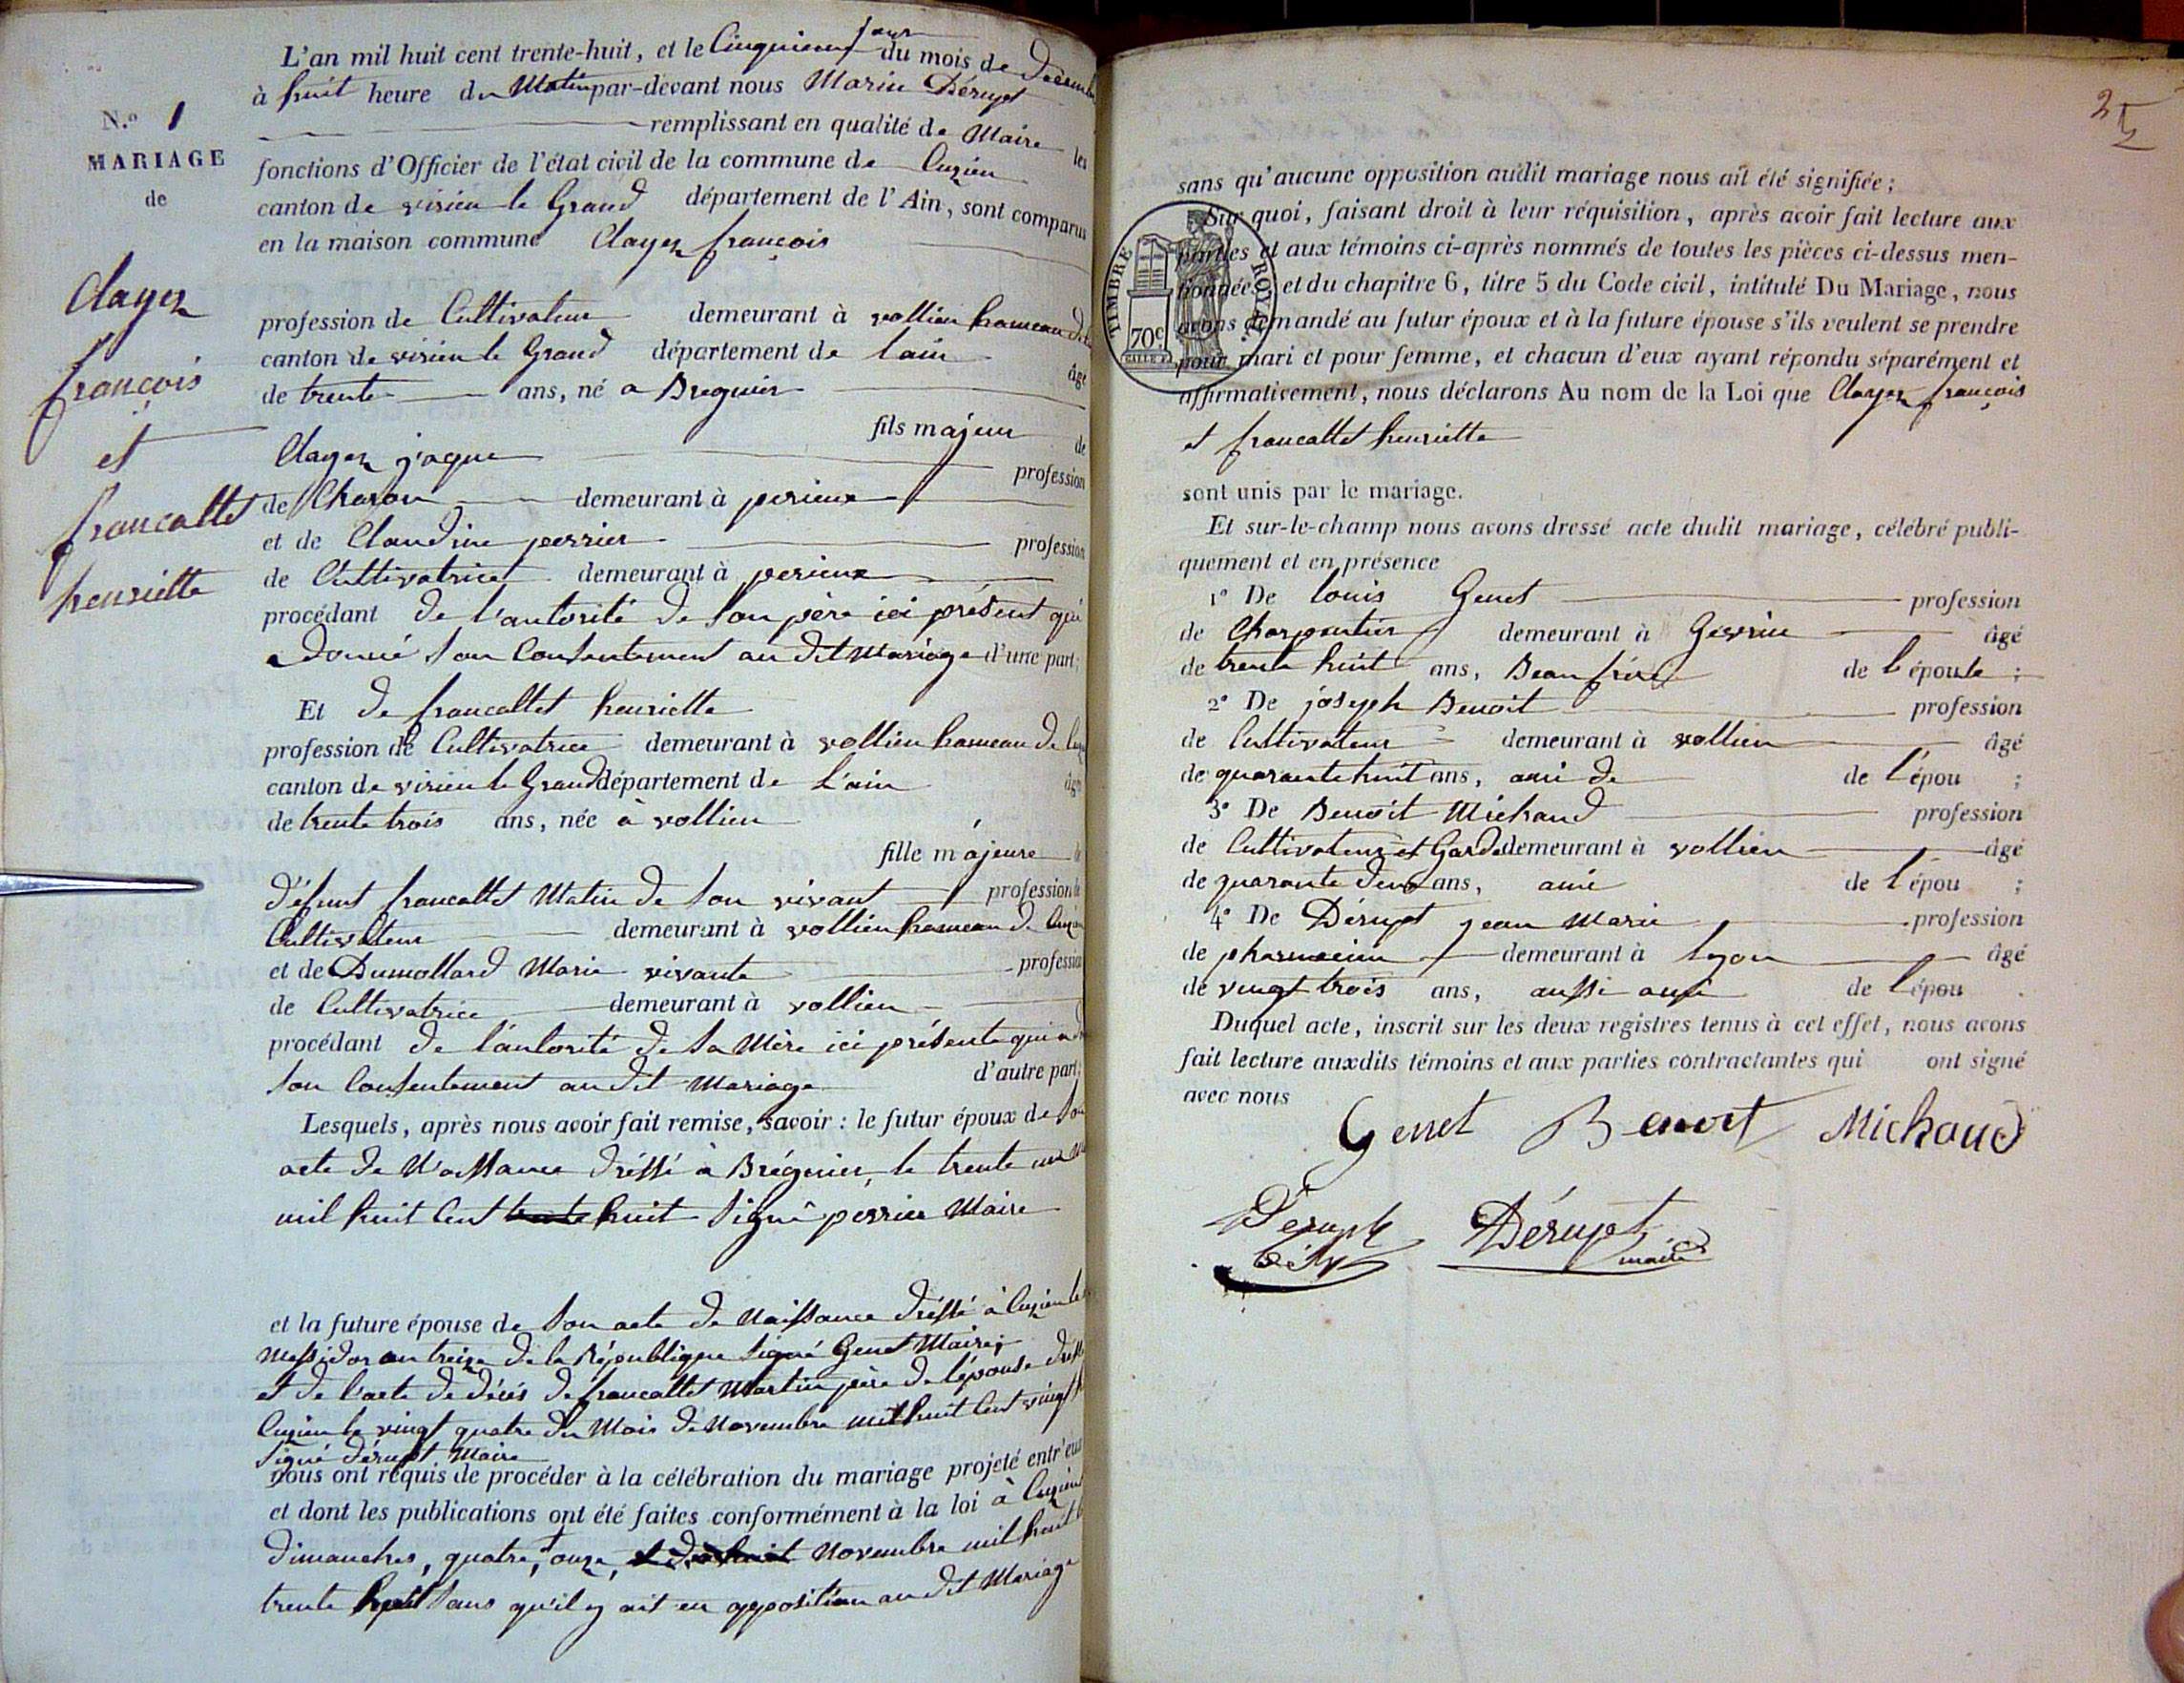 L'an mil huit cent trente-huit, et le Cinquieme jour du mois de Décembre
à huit heure du Matin par-devant nous Marin Dérupt
remplissant en qualité de Maire les
fonctions d'Officier de l'état civil de la commune de Cuzieu
canton de virieu le Grand département de l'Ain, sont comparus
en la maison commune Clayez françois
N.o 1
MARIAGE
de
Clayez
françois
et
francallet
henriette
profession de Cultivateur demeurant à vollien hameau de
canton de virieu le Grand département de lain
âgé
de trente ans, né a Breguier
fils majeur de
Clayez jaque profession
de Charon demeurant à perieux
et de Claudine perrier profession
de Cultivatrice demeurant à perieux
procédant de l'autorité de son père ici présent qui
a donné son Consentement au dit Mariage d'une part;
Et de francallet henriette
profession de Cultivatrice demeurant à vollien hameau de
canton de virieu le Grand département de L'ain âgée
de trente trois ans, née à vollien
fille majeure de
défunt francallet Matin de son vivant profession
Cultivateur demeurant à vollien hameau de
et de Dumollard Marie vivante profession
de Cultivatrice demeurant à vollien
procédant de l'autorité de sa Mère ici présente qui a
son Consentement au dit Mariage d'autre part;
Lesquels, après nous avoir fait remise, savoir : le futur époux de son
acte de Naissance dréssé à Bréguier, le trente un
mil huit Cent huit signé perrier Maire
et la future épouse de son acte de Naissance dréssé à Cuzieu le
Messidor an treize de la République signé Genet Maire;
et de l'acte de décés de francallet Martin père de l'épouse
Cuzieu le vingt quatre du Mois de Novembre mil huit Cent vingt
signé dérupt Maire
nous ont requis de procéder à la célébration du mariage projeté entr'eux
et dont les publications ont été faites conformément à la loi à Cuzieu
dimanches, quatre, onze, Novembre mil huit
trente huit sans qu'il y ait eu opposition au dit Mariage
25
sans qu'aucune opposition audit mariage nous ait été signifiée;
Sur quoi, faisant droit à leur réquisition, après avoir fait lecture aux
parties et aux témoins ci-après nommés de toutes les pièces ci-dessus men-
tionnées et du chapitre 6, titre 5 du Code civil, intitulé Du Mariage, nous
avons demandé au futur époux et à la future épouse s'ils veulent se prendre
pour mari et pour femme, et chacun d'eux ayant répondu séparément et
affirmativement, nous déclarons Au nom de la Loi que Clayez françois
et francallet henriette
TIMBRE ROYAL.
70c
sont unis par le mariage.
Et sur-le-champ nous avons dressé acte dudit mariage, célébré publi-
quement et en présence
1° De louis Genet profession
de Charpentier demeurant à âgé
de trente huit ans, Beau frère de l'épouse ;
2° De joseph Benoit profession
de Cultivateur demeurant à vollien âgé
de quarante huit ans, ami de de l'épou ;
3° De Benoit Michaud profession
de Cultivateur et Garde demeurant à vollien âgé
de quarante deux ans, ami de l'épou ;
4° De Dérupt jean Marie profession
de pharmacien demeurant à lyon âgé
de vingt trois ans, aussi ami de l'épou .
Duquel acte, inscrit sur les deux registres tenus à cet effet, nous avons
fait lecture auxdits témoins et aux parties contractantes qui ont signé
avec nous
Genet Benoit Michaud
Dérupt Dérupt
maire